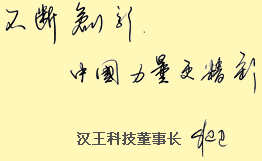 不斷創新.
中國力量更精彩
汉王科技董事长